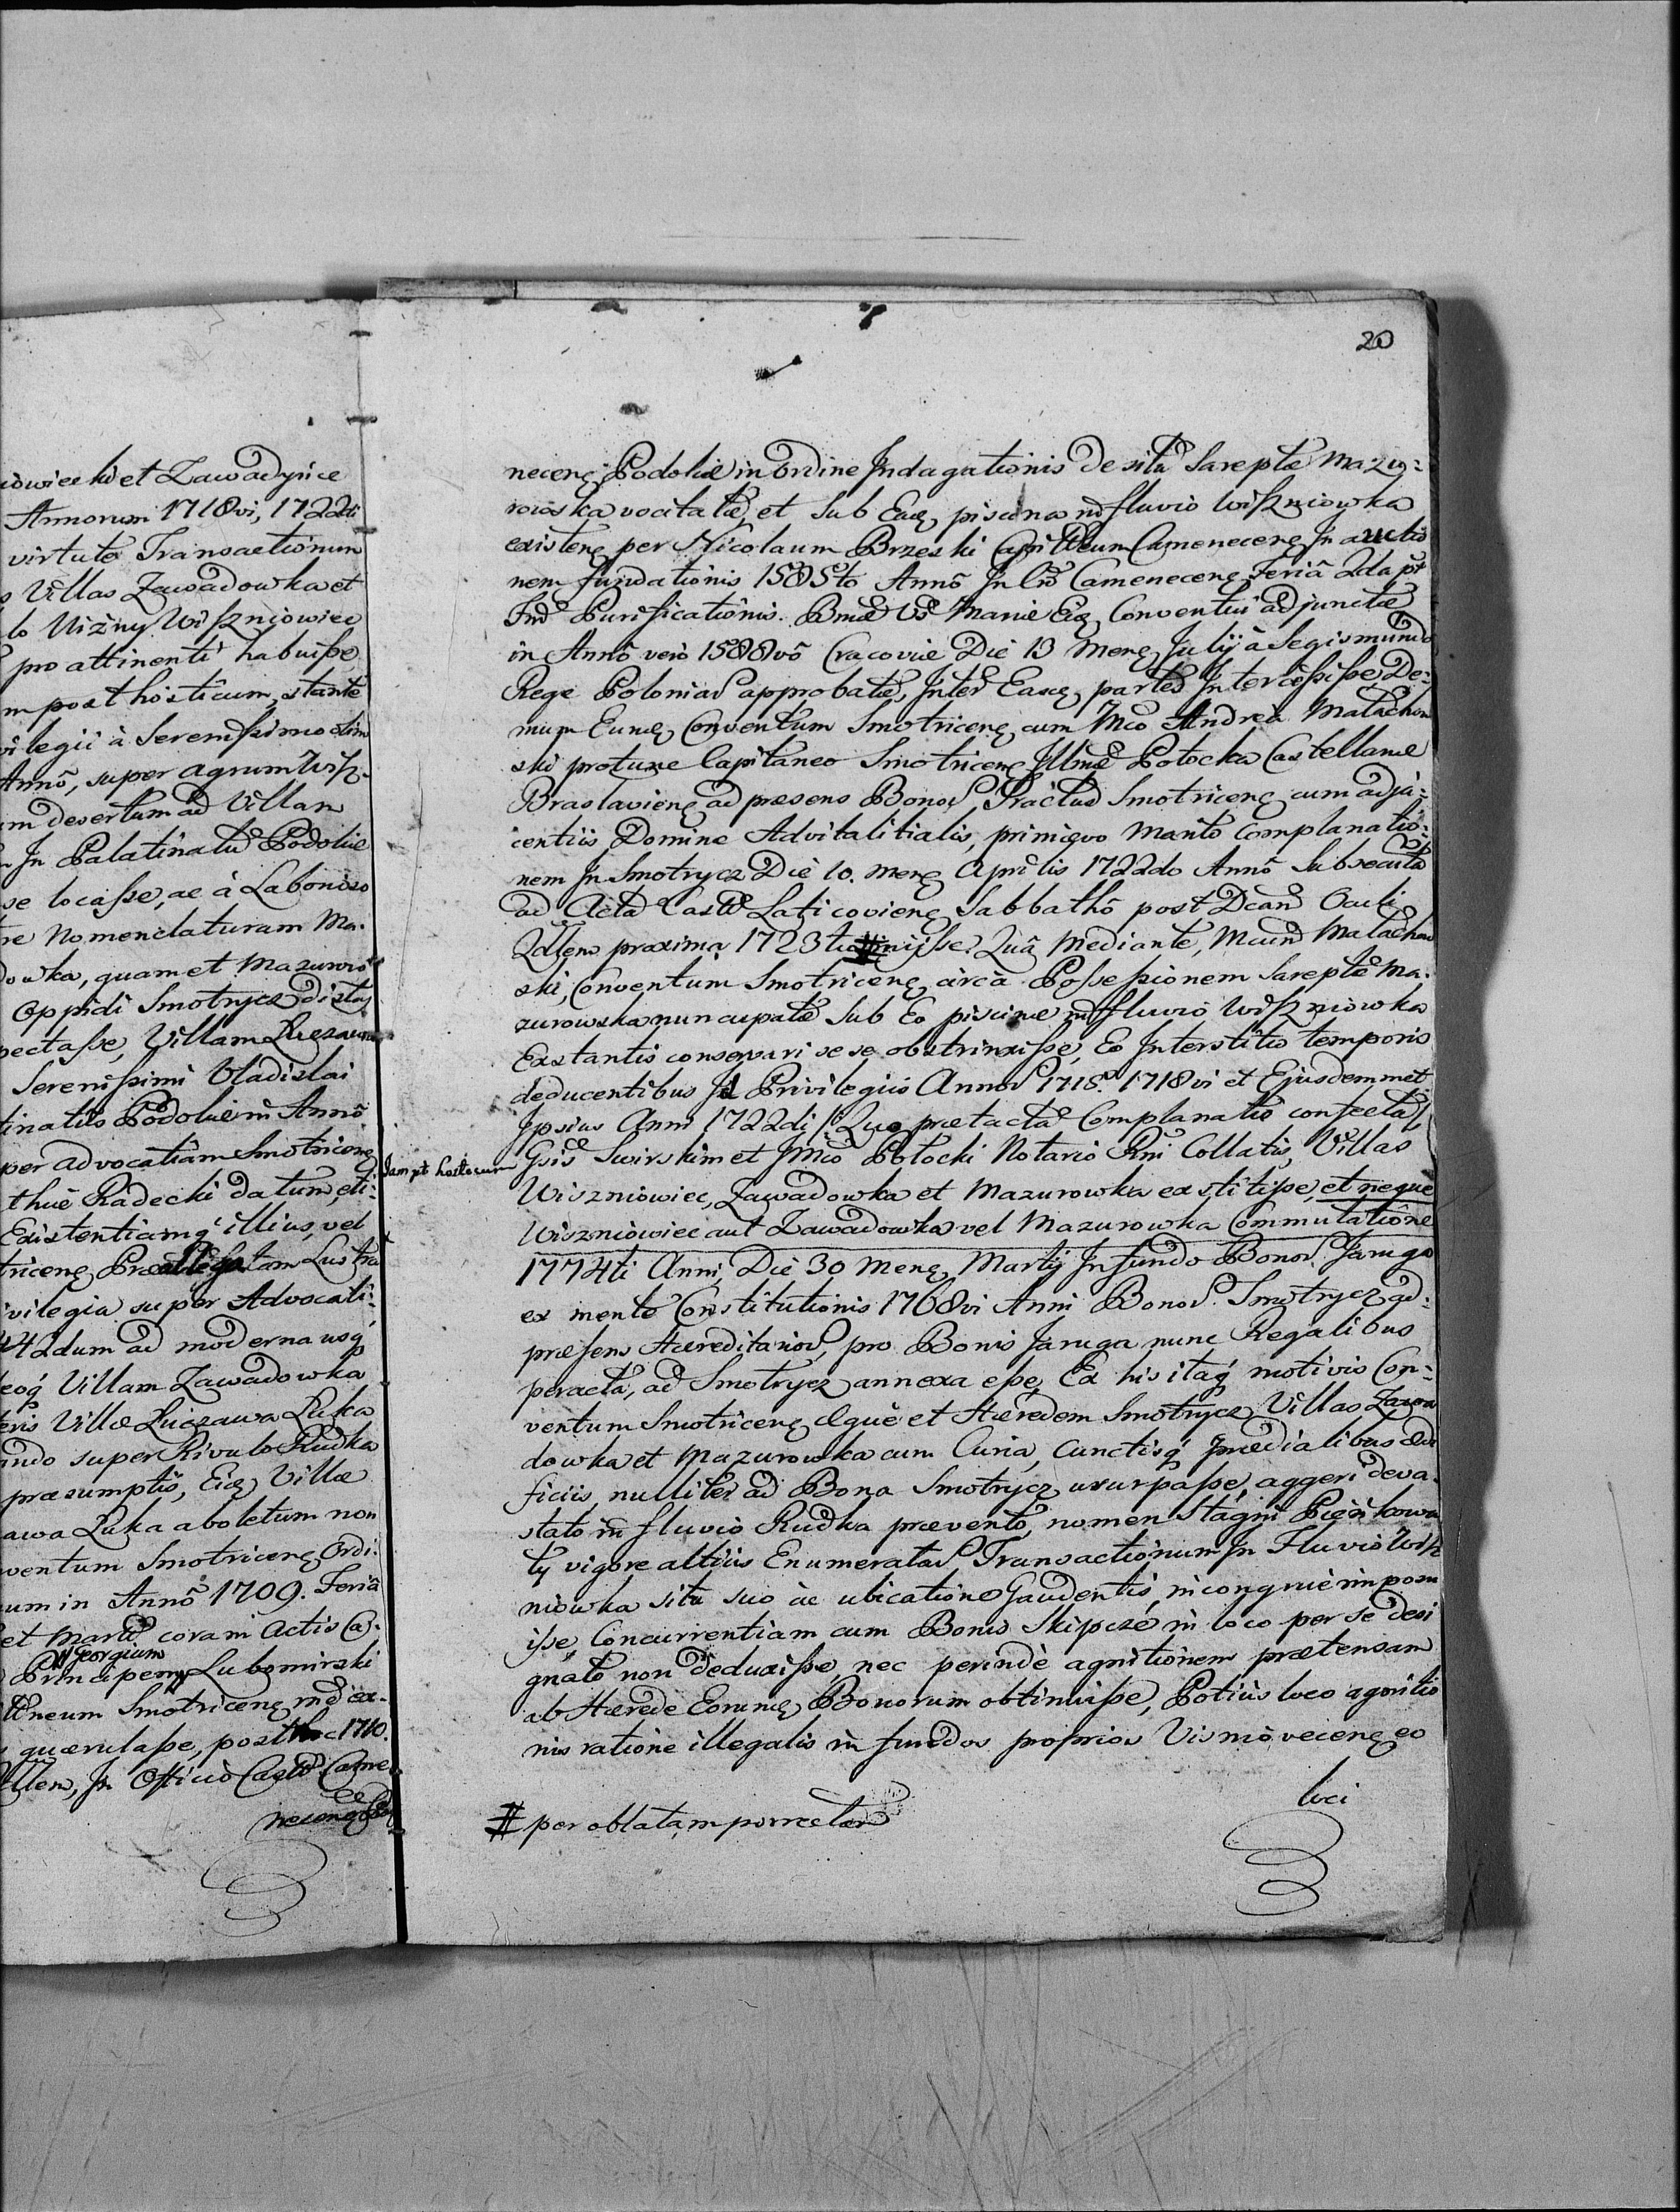 iowiecki et Zawadynce
Annorum 1718vi, 1722di
virtute Transactionum
Villas Zawadowka et
lo Niżny Wiszniowiec
pro attinenti habuisse
m post hosticum, stante
vilegii à Serenissimo olim
Anno, super agrum Wisz-
um desertum ad Villam
In Palatinatu Podoliæ
se locasse, ac à
re Nomenclaturam Ma-
dowka, quam et Mazurow
Oppidi Smotrycz
pectasse, Villam
Serenissimi Vladislai
tinatus Podoliæ in Anno
per advocatiam Smotricenę
thuæ Radecki datum, eti-
Existentiamq́ illius, vel
tricenę Præallegatam Lustra
ivilegia super Advocati-
42dum ad moderna usq́
eoq́ Villam Zawadowka
eris Villæ Luczawa Luka
ando super Rivulo Rudka
præsumptis, Eidę Villæ
awa Luka aboletum non
ventum Smotricenę Ordi-
um in Anno 1709. Feria
et Martÿ coram Actis Ca-
Georgium
Principem Lubomirski
Smotricenę
querulasse, post hac 1710.
In Officio Castr Came-
necenę Pod
20
necenę Podoliæ in Ordine Indagationis de situ Sareptæ Mazu-
rowska vocitatæ, et sub Eadę piscina in fluvio Wiszniowka
existenę per Nicolaum Brzeski Capitneum Camenecenę In auctio
nem fundationis 1585to Anno In Camenecenę Feriâ 2da pt
Purificationis Bmæ Vs Mariæ Eidę Conventui adjunctæ
in Anno verò 1588vo Cracoviæ Die 13 Menę Julÿ à Segismundo
Rege Poloniar approbatæ, Inter Easdę partes Intercessisse, De-
mum Eundę Conventum Smotricenę cum Mco Andrea Małachow
ski protunc Capitaneo Smotricenę Illmæ Potocka Castellanæ
Braslavienę ad præsens Bonor Tractus Smotricenę cum adja-
centiis Dominæ Advitalitialis, primævo Marito Complanatio-
nem In Smotrycz Die 10. Menę Aprilis 1722do Anno Subsecuta
ad Acta Castr Laticovienę Sabbatho post Dcam Oculi
Qdlem proxima 1723tio # inisse. Qua Mediante, Mcum Małachow
ski, Conventum Smotricenę circà Possessionem Sareptæ Ma-
zurowska nuncupatæ Sub Eo piscinæ in fluvio Wiszniowka
Exstantis conservari se se obstrinxisse, Eo Interstitio temporis
deducentibus Id Privilegiis Annor 1715. 1718vi et Ejusdemmet
Ipsius Anni 1722di Quo prætacta Complanatio confecta
Jampt hosticum
Gsis Swirskim et Mco Potocki Notario Rni Collatis, Villas
Wiszniowiec, Zawadowka et Mazurowka exstitisse, et neque
Wiszniowiec aut Zawadowka vel Mazurowka Commutatione
1774ti Anni, Die 30 Menę Martÿ In fundo Bonor Jaruga
ex mente Constitutionis 1768vi Anni Bonor Smotrycz ad-
præsens Hæreditarior, pro Bonis Jaruga nunc Regalibus
peracta, ad Smotrycz annexa esse, Ex his itaq́ motivis Con-
ventum Smotricenę Æquè et Hæredem Smotrycz Villas Zawa
dowka et Mazurowka cum Curia, Cunctisq́ prædialibus ædi
ficiis, nulliter ad Bona Smotrycz usurpasse, aggeri deva-
stato in fluvio Rudka prævento, nomen Stagni Pieńkowa
ty vigore altius Enumeratar Transactionum In Fluvio Wisz
niowka situ suo ac ubicatione Gaudentis, incongruè imposu
isse, Concurrentiam cum Bonis Skipcze in loco per se desi
gnato non deduxisse, nec perindè agnitionem prætensam
ab Hærede Eorundę Bonorum obtinuisse, Potiùs loco agnitio
nis ratione illegalis in fundos proprios Wisniovecenę eo
loci
# per oblatam porrectam